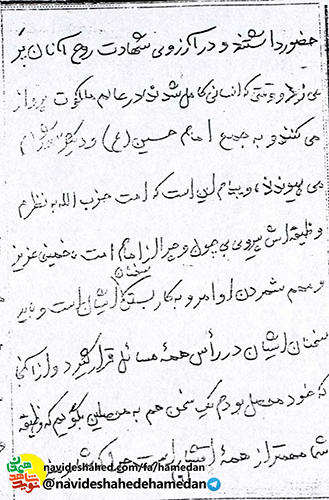 حضور داشتند و در آرزوی شهادت روح آنان پر
می زد و وقتی که انسانی کامل شدند در عالم ملکوت پرواز
می کنند و به جمع امام حسین (ع) و دیگر
می پیوندند، و پیام من این است که امت حزب الله به نظرم
وظیفه اش پیروی بی چون و چرا از امام امت، خمینی عزیز
و مهم شمردن اوامر و به کار بستن سخنان ایشان است و باید
سخنان ایشان در رأس همه مسائل قرار گیرد و از آنجا
که خود محصل بودم یک سخن هم به محصلین بگویم که وظیفه
شما مهمتر از همه اقشار است چرا که
navideshahed.com/fa/hamedan
@navideshahedehamedan